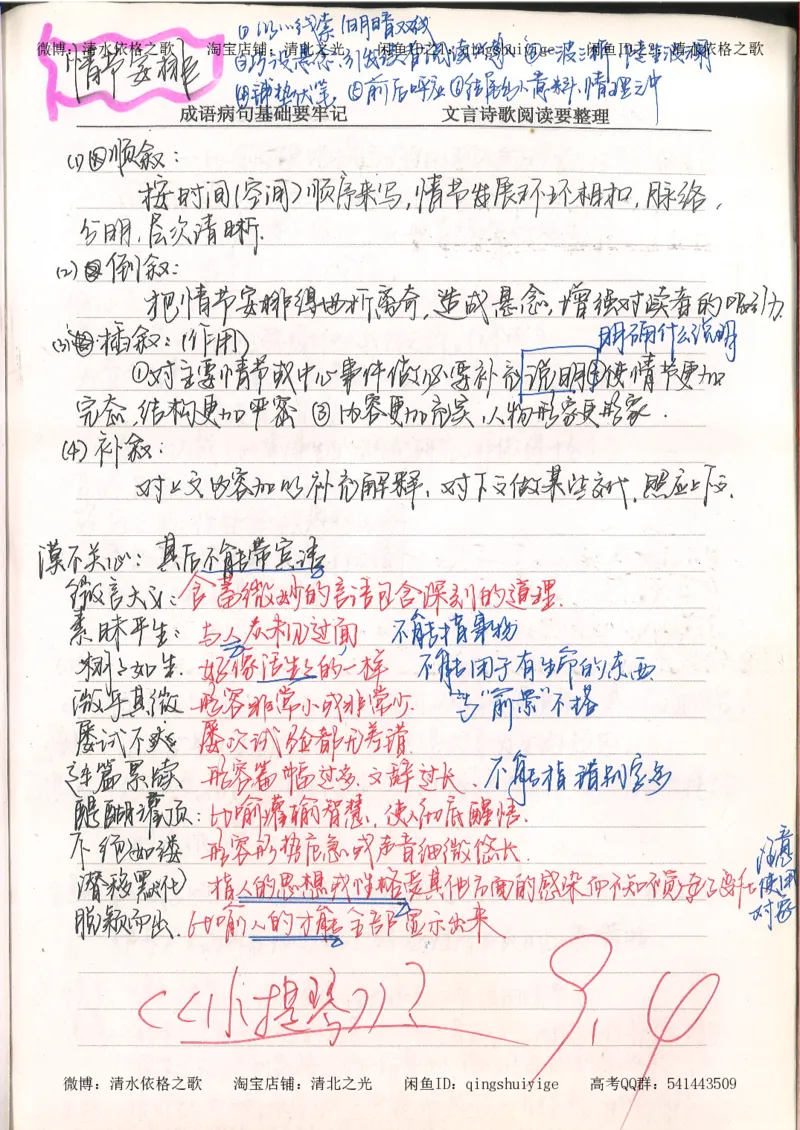 ①以××线索 明暗双线
微博：清水依格之歌 淘宝店铺：清北之光 闲鱼ID1：qingshuiyige 闲鱼ID2：清水依格之歌
②巧设悬念，引发读者阅读兴趣 ③一波三折 陡生波澜
情节安排
④铺垫伏笔 ⑤前后呼应 ⑥结尾出人意料，情理之中
成语病句基础要牢记 文言诗歌阅读要整理
(1)顺叙：
按时间(空间)顺序来写，情节发展环环相扣，脉络，
分明，层次清晰.
(2)倒叙：
把情节安排得曲折离奇，造成悬念，增强对读者的吸引力
明确什么说明
(3)插叙：(作用)
①对主要情节或中心事件做必要补充说明②使情节更加
完态，结构更加严密 ③内容更加充实，人物形象更形象.
(4)补叙：
对上文内容加以补充解释，对下文做某些交代，照应上下文.
漠不关心：其后不能带宾语
微言大义：含蓄微妙的言语包含深刻的道理.
素昧平生：与人从未见过面 不能指事物
栩栩如生. 好像活生生的一样 不能用于有生命的东西.
微乎其微 形容非常小或非常少. 与"前景"不搭
屡试不爽 屡次试验都无差错.
连篇累牍 形容篇幅过多，文辞过长. 不能指错别字多
醍醐灌顶：比喻灌输智慧，使人彻底醒悟.
不绝如缕 形容形势危急或声音细微悠长.
潜移默化 指人的思想或性格受其他方面的感染而不知不觉变了变化
注意使用对象
脱颖而出. 比喻人的才能全部显示出来
《《小提琴》》2 9.4
微博：清水依格之歌 淘宝店铺：清北之光 闲鱼ID：qingshuiyige 高考QQ群：541443509